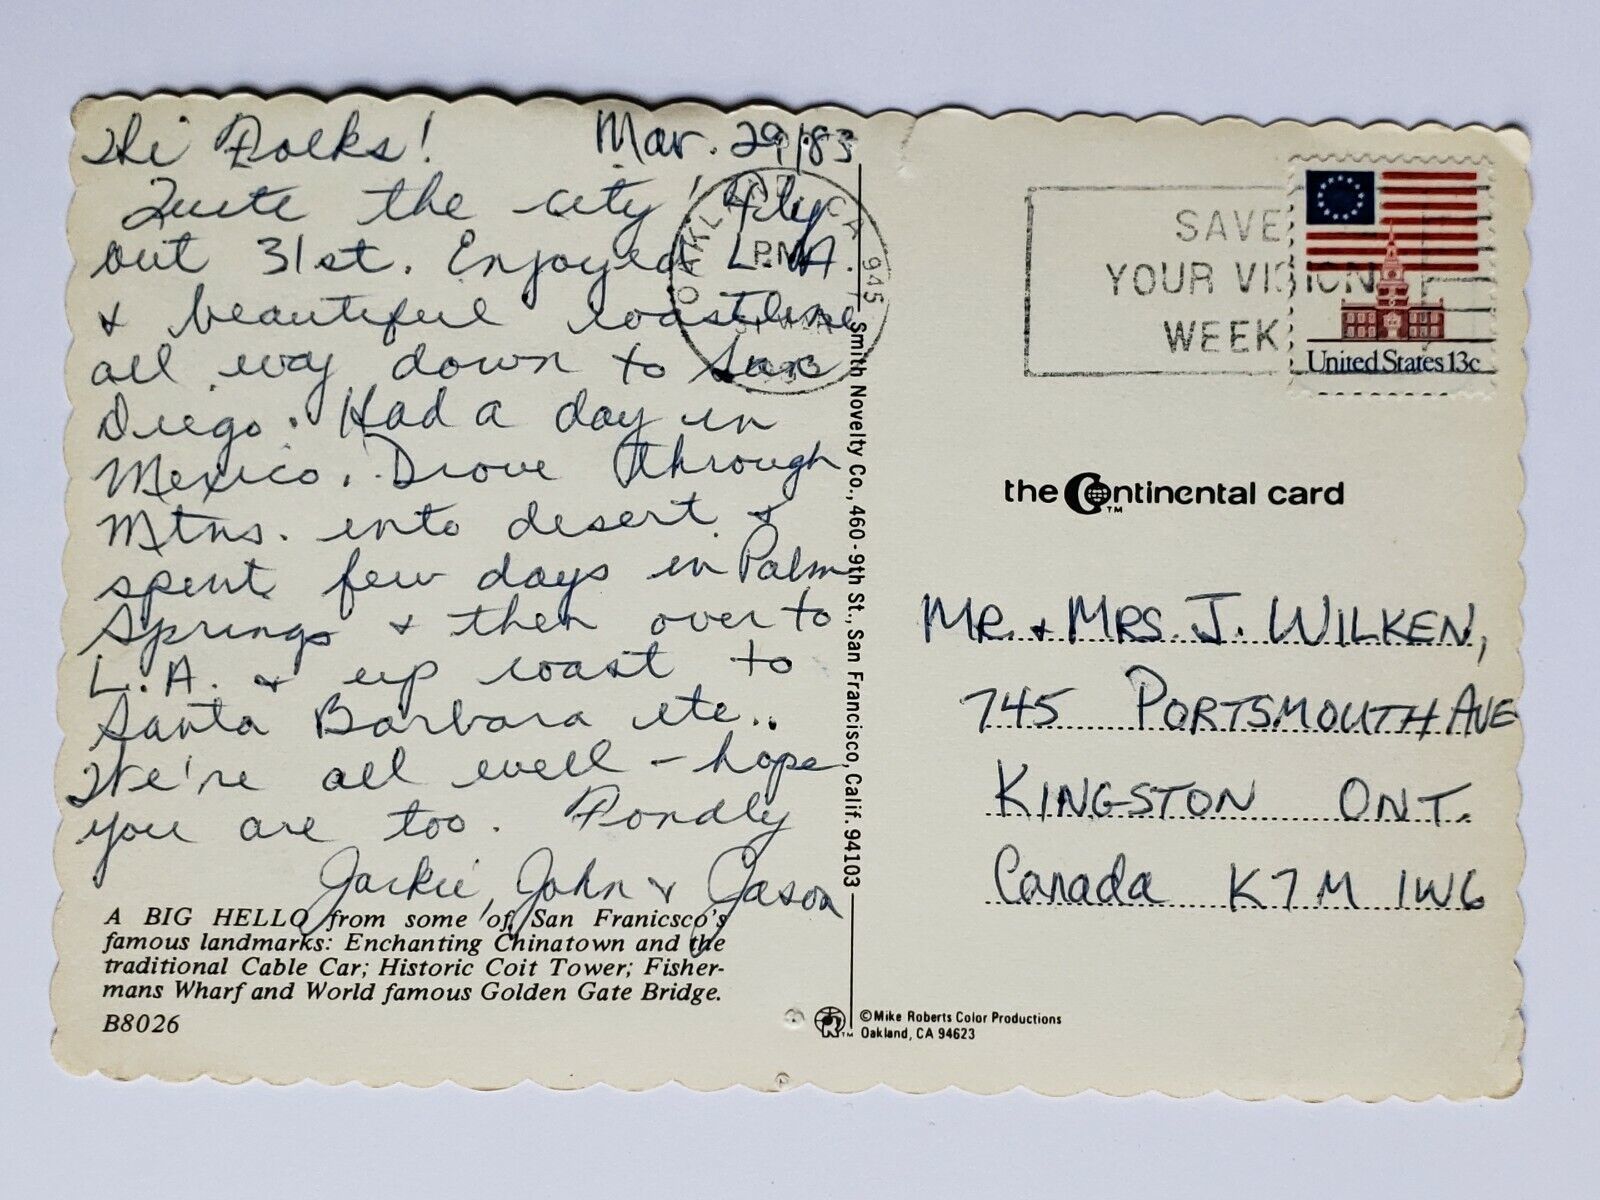 Hi Folks! Mar. 29/83
Quite the city! Fly
out 31st. Enjoyed L.A.
& beautiful coastline
all way down to San
Diego. Had a day in
Mexico. Drove through
Mtns. into desert &
spent few days in Palm
Springs & then over to
L.A. & up coast to
Santa Barbara etc..
We're all well - hope
you are too. Fondly
Jackie, John & Jason
A BIG HELLO from some of San Franicsco's
famous landmarks: Enchanting Chinatown and the
traditional Cable Car; Historic Coit Tower; Fisher-
mans Wharf and World famous Golden Gate Bridge.
B8026
Smith Novelty Co., 460-9th St., San Francisco, Calif. 94103
OAKLAND, CA 945
PM
SAVE
YOUR VISION
WEEK
United States 13c
the Continental card
TM
MR. & MRS. J. WILKEN,
745 PORTSMOUTH AVE
KINGSTON ONT.
Canada K7M 1W6
©Mike Roberts Color Productions
TM Oakland, CA 94623